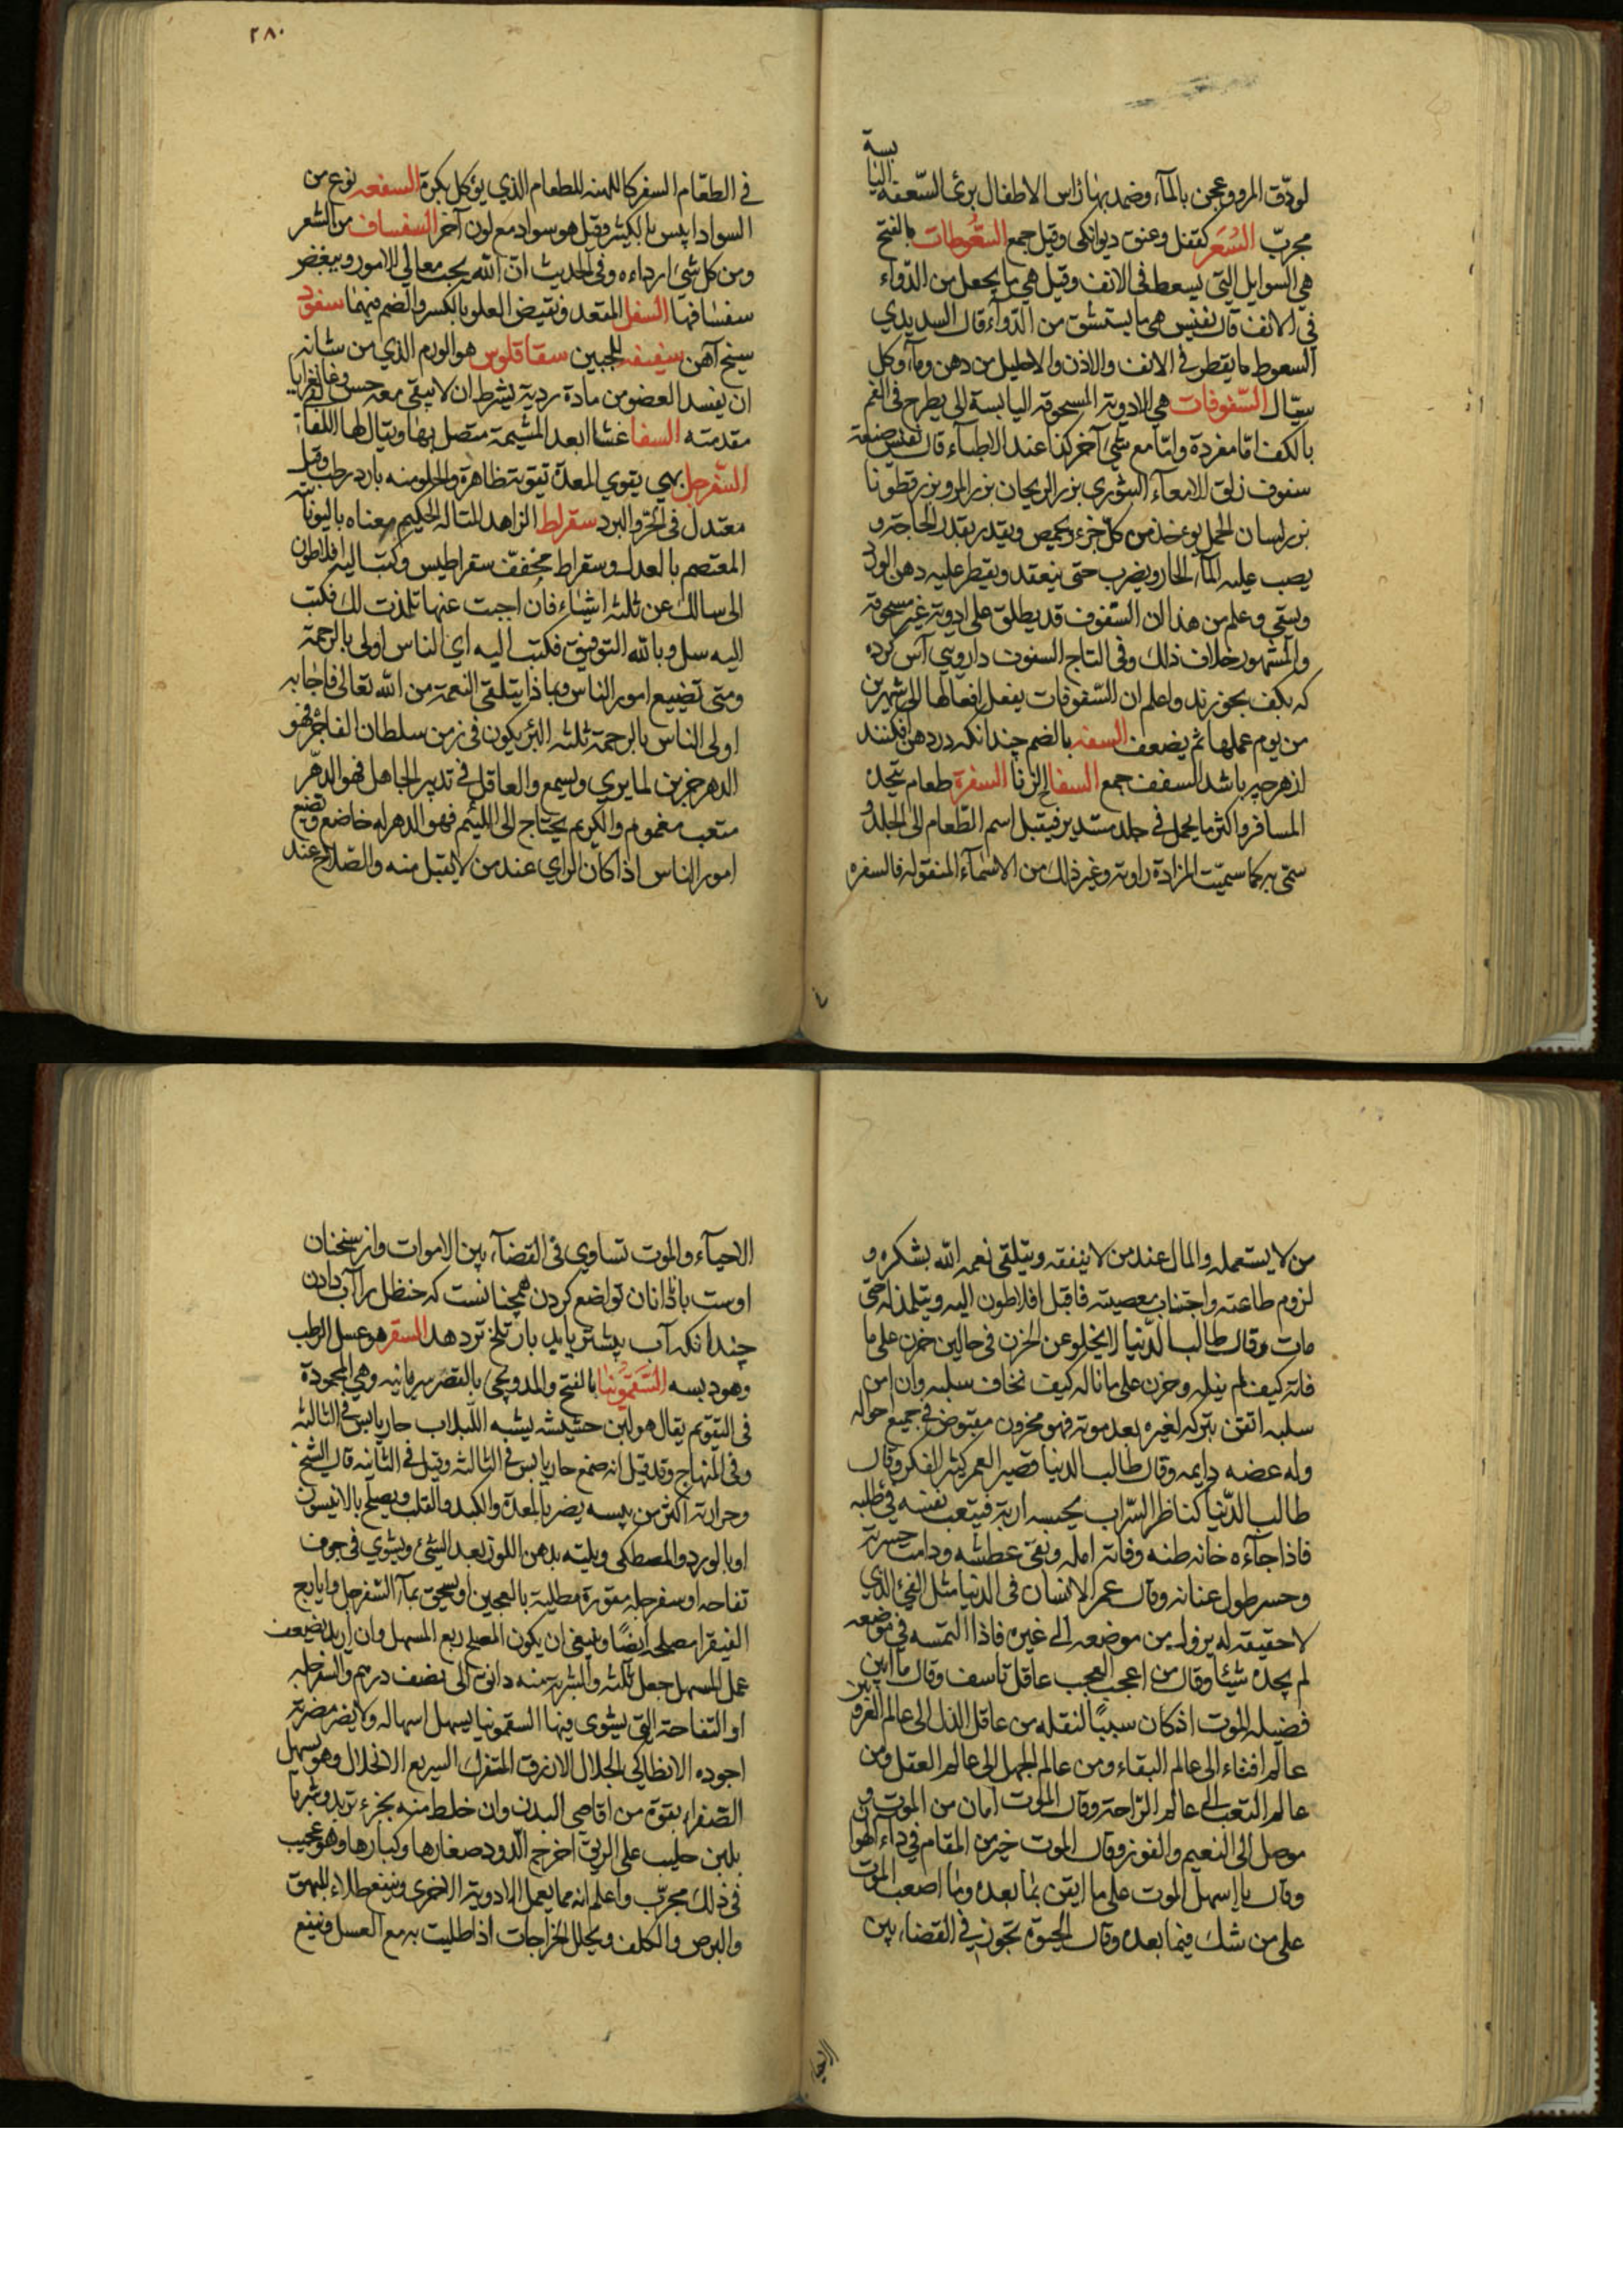 لو دقّ المرو وعجن بالمآء وضمد بها رأس الاطفال برئ السّعفة اليا
بسة
مجربّ السُعَر كقفل وعنق ديوانكى وقيل جمع السَّعُوطات بالفتح
هي السوايل التي يسعط فى الانف وقيل هي ما يجعل من الدّواء
في الانف قال نفيس هي ما يستنشق من الدّوآء قال السديدي
السعوط ما يقطر في الانف والاذن والاحليل من دهن ومآء وكل
سيّال السّفوفات هي الادوية المسحوقة اليابسة التى يطرح فى الفم
بالكف امّا مفردة وامّا مع شئ آخر كذا عند الاطبآء قال نفيس صنعة
سفوف زلق الامعاء البثوري بزر الريحان بزر المرو بزر قطونا
بزر لسان الحمل يوءخذ من كلّ جزء ويحمص ويقدر بقدر الحاجة و
يصب عليه المآء الحار ويضرب حتى ينعقد ويقطر عليه دهن الورد
ويسقي وعلم من هذا ان السّفوف قد يطلق على ادوية غير مسحوقة
والمشهور خلاف ذلك وفى التاج السفوف دارويى آس كرده
كه بكف بخورند واعلم ان السّفوفات يفعل افعالها الى شهرين
من يوم عملها ثم يضعف السفه بالضم چندانكه در دهن افكنند
از هر چيز باشد السفف جمع السفاح الزنا السفرة طعام يتخذه
المسافر واكثر ما يحمل في جلد مستدير فيقبل اسم الطّعام الى الجلد و
سمّى به كما سميّت المزادة راوية وغير ذلك من الاسمآء المنقوله فالسفره
٢٨٠
في الطعّام السفر كاللهنه للطعام الذي يؤكل بكرة السفعه نوع من
السواد ليس بالكثير وقيل هو سواد مع لون آخر السفساف من الشعر
ومن كل شئ ارداءه وفى الحديث انّ الله يحب معالي الامور ويبغض
سفسافها السفل المقعد ونقيض العلو بالكسر والضم فيهما سفود
سيخ آهن سفيفه للجبين سقاقلوس هو الورم الذي من شانه
ان يفسد العضو من مادة ردية بشرط ان لا يبقى معه حس وغانغرايا
مقدمته السفا غشاا بعد المشيمة متصل بها ويقال لها اللفاة
السّفرجل بهي يقوي المعدة تقوية ظاهرة والحلو منه بارد رطب وقيل
معتدل فى الحرّ والبرد سقراط الزاهد المتاله الحكيم معناه باليونانية
المعتصم بالعدل وسقراط مخففّ سقراطيس وكتب اليه افلاطون
انى سالك عن ثلثه اشياء فان اجبت عنها تلمذت لك فكتب
اليه سل وبالله التوفيق فكتب اليه اي الناس اولى بالرحمة
ومتى تضييع امور الناس وبماذا يتلقى النعمة من الله تعالى فاجابه
اولى الناس بالرحمة ثلثه البرّ يكون في زمن سلطان الفاجر فهو
الدهر حزين لما يري ويسمع والعاقل في تدبير الجاهل فهو الدهّر
متعب مغموم والكريم يحتاج الى اللئيم فهو الدهر له خاضع وتضيع
امور الناس اذا كان الراي عند من لا يقبل منه والسّلاح عند
من لا يستعمله والمال عند من لا ينفقه ويتلقى نعمه الله بشكره و
لزوم طاعته واجتناب معصيته فاقبل افلاطون اليه ويتلمذ له حتى
مات وقال طالب الدّنيا لا يخلو عن الحزن في حالين حزن على ما
فاته كيف لم ينله وحزن على ما ناله كيف نخاف سلبه وان امن
سلبه اتقن بتركه لغيره بعد موته فهو محزون مقبوض في جميع احواله
وله عضه دايمه وقال طالب الدنيا قصير العمر كثير الفكر وقال
طالب الدّنيا كناظر السّراب يحسبه اربة فيتعب نفسه في طلبه
فاذا جآءه خانه ظنه وفاته امله وبقى عطشه ودامت حسرته
وخسر طول عنانه وقال عمر الانسان فى الدنيا مثل الفئ الذي
لا حقيقة له يزول من موضعه الى غيره فاذا التمسه في موضعه
لم يجده شيئا وقال من اعجب العجب عاقل تاسف وقال ما ابين
فضيله الموت اذ كان سببًا لنقله من عاقل الذل الى عالم العز ومن
عالم افناء الى عالم البقاء ومن عالم الجهل الى عالم العقل ومن
عالم التعب الى عالم الرّاحة وقال الموت امان من الموت و
موصل الى النعيم والفوز وقال الموت خير من المقام في دآء الهوان
وقال ما اسهل الموت على ما ايقن بما بعده وما اصعب الموت
على من شك فيما بعده وقال الحيوة تجوز في القضاء بين
الاحيآء والموت تساوي فى القضآء بين الاموات واز سخنان
اوست با دانان تواضع كردن همچنانست كه حنظل را آب دادن
چندانكه آب بيشتر يابد بار تلخ تر دهد السقر هو عسل الرطب
وهو دبسه السَّقَمُونيا بالفتح والمد ويجئ بالقصر سريانيه وهي المحمودة
فى التقويم يقال هو لبن حشيشه يشبه اللبلاب حار يابس في الثالثه
وفى المنهاج وقد قيل انه صمغ حار يابس في الثالثه وقيل في الثانيه قال الشيخ
وحرارته اكثر من يبسه يضر بالمعدة والكبد والقلب ويصلح بالانيسون
او بالورد والمصطكى ويلته بدهن اللوز بعد الشئ ويشوي في جوف
تفاحه او سفرجله مقورة مطلية بالعجين او يسحق بمآء السّفرجل وايارج
الفيقرا مصلحه ايضًا وينبغى ان يكون المصلح ربع المسهل وان اريد تضيعف
عمل المسهل جعل ثلثه والشربة منه دانق الى نصف درهم والسفرجله
او التفاحة التى يشوى فيها السقمونيا يسهل اسهاله ولا يضر مضرته
اجوده الانطاكى الجلال الازرق المتفرك السريع الانحلال وهو يسهل
الصّفراء بقوة من اقاصى البدن وان خلط منه بجزء تربد وشربا
بلبن حليب على الريق اخرج الدود صغارها وكبارها وهو عجيب
فى ذلك مجربّ واعلم انه مما يعمل الادوية الاخرى وينفع طلاء للبهق
والبرص والكلف ويحلل الخراجات اذا طليت به مع العسل وينفع